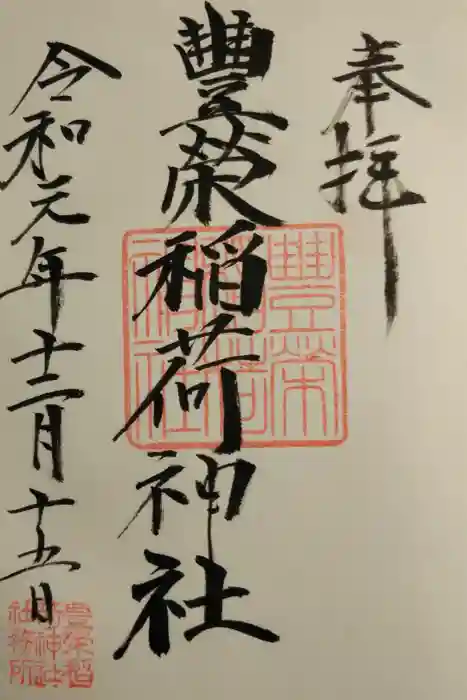 奉拝
豐榮稲荷神社
令和元年十二月十五日
豐榮稲荷神社
豊栄稲荷神社社務所